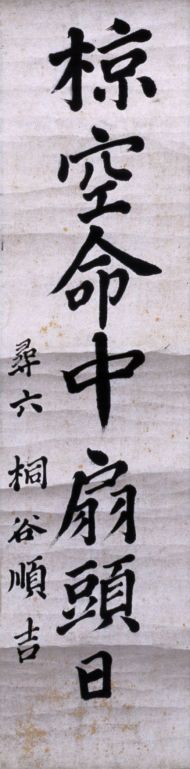 椋空命中扇頭日
尋六 桐谷順吉